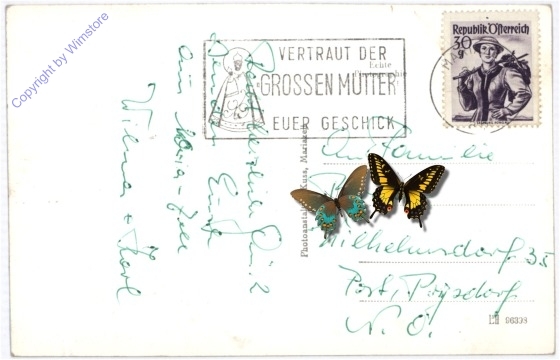 Copyright by Wimstore
Republik Österreich
30
g
VERTRAUT DER
Echte
Photographie
"GROSSEN MUTTER"
EUER GESCHICK
MA
Photoanstalt Kuss, Mariazell
herzliche
aus Maria-Zell
Wilma + Karl
An Familie
Wilhelmsdorf 35
Post, Poysdorf
N. Ö.
96338